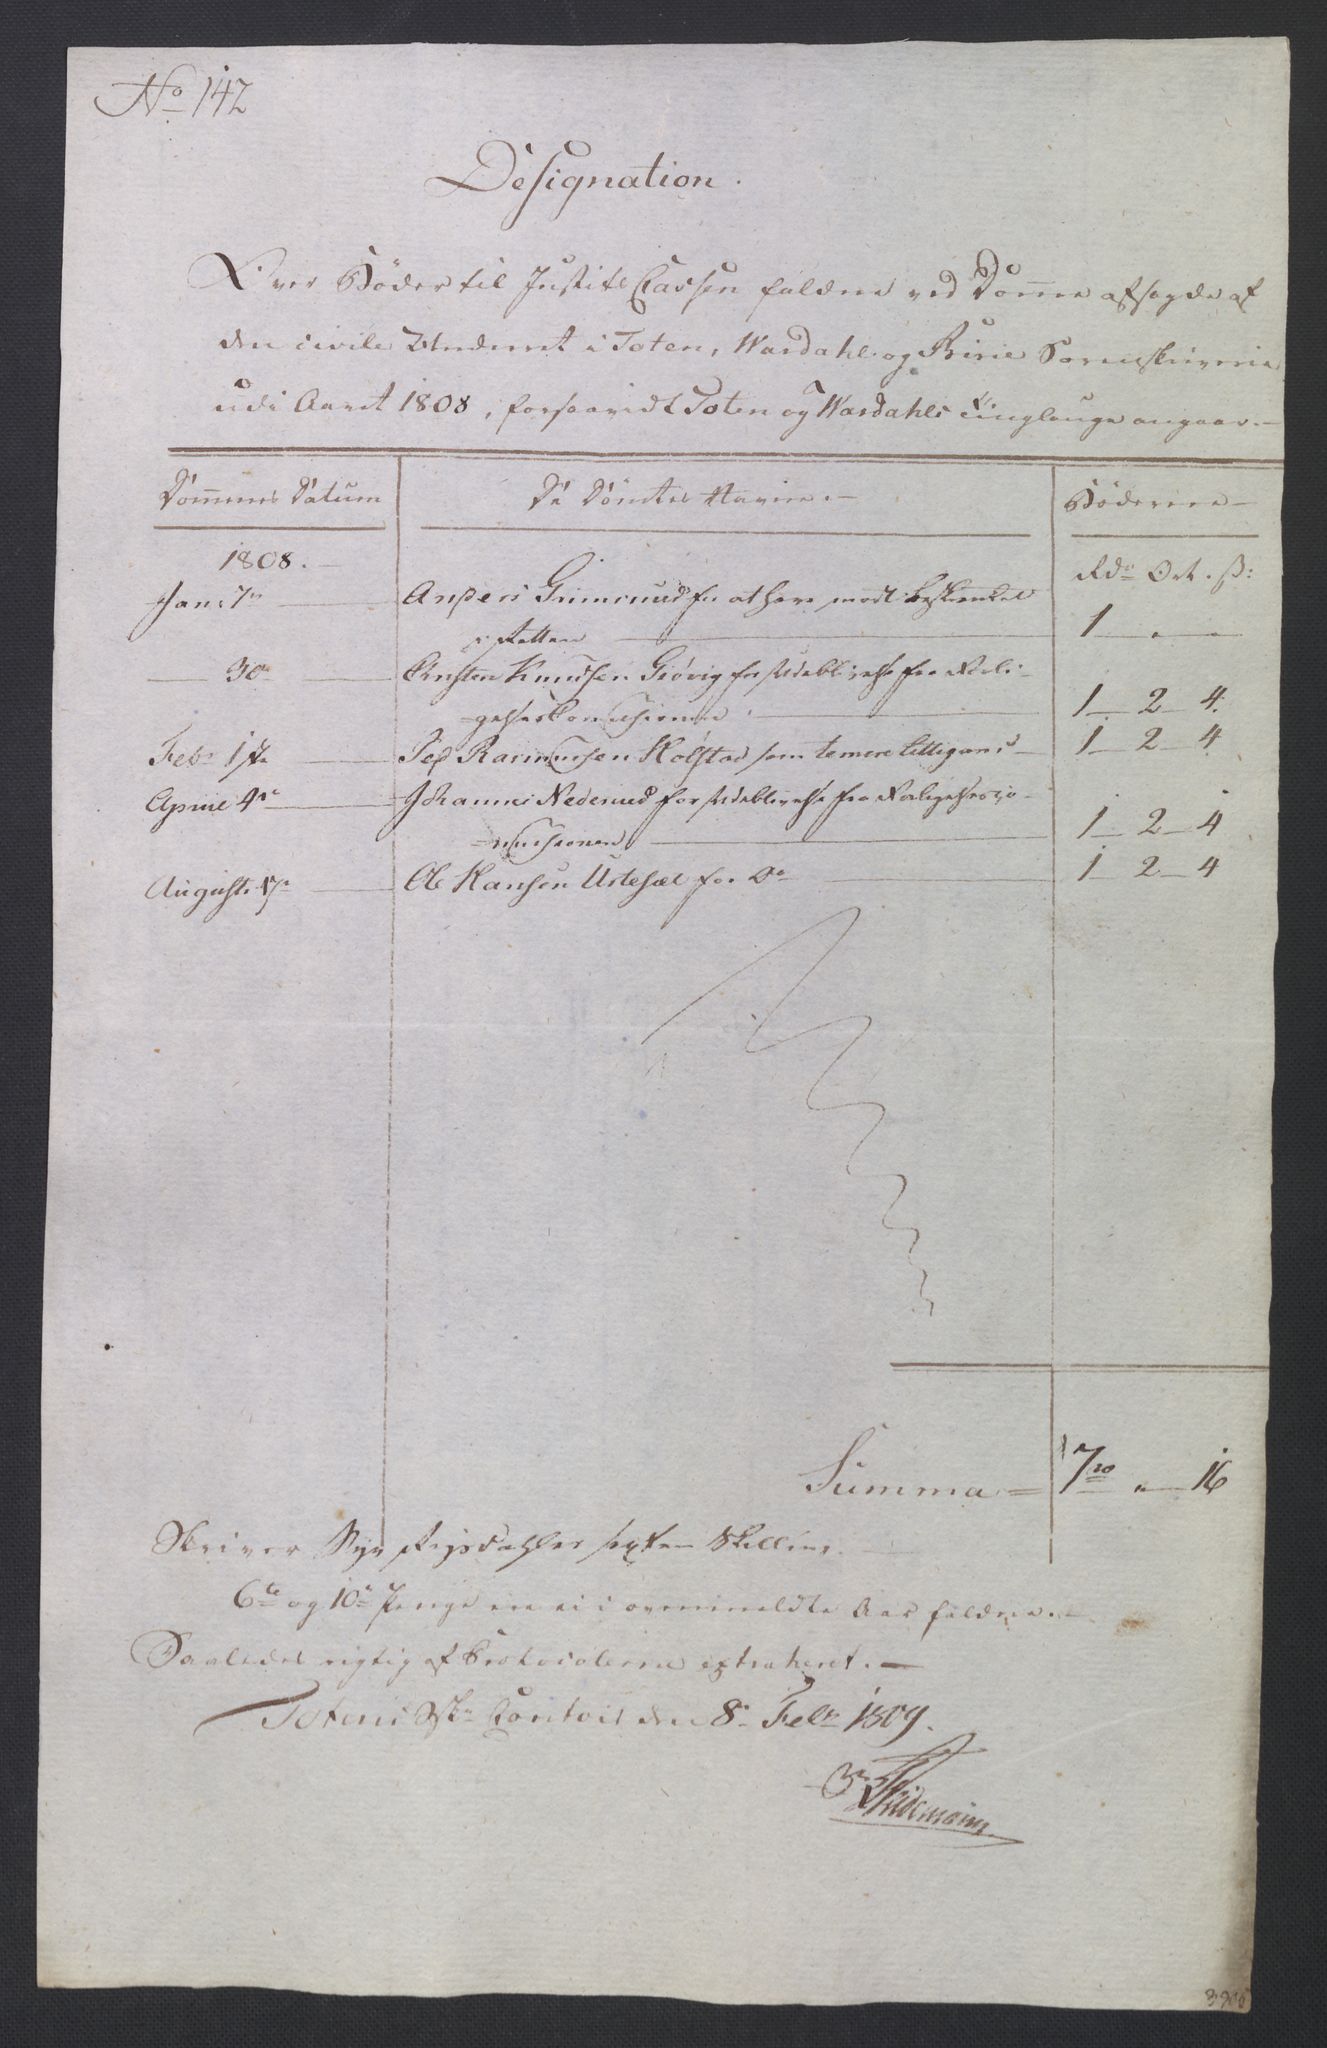 No 142
Designation.
Over Böder til Justits Cassen faldne ved Domme afsagde af
den civile Underret i Toten, Wardahl og Birie Sorenskriverie
udi Aaret 1808, forsaavidt Toten og Wardahls Tinglauge angaaer.—
Dommens Datum
De Dömtes Navne.—
Böderne—
1808.—
Rdr Ort. ß:
Jan: 7de
Anders Grimsrud for at have mödt beskienket
i Retten
1 „ „
— 30
Christen Knudsen Giövig for Udeblivelse fra Forli-
gelses Commissionen
1 2 4
Febr 1ste
Peder Rasmussen Kolstad som temere littigans
1 2 4
Aprill 4de
Johannes Nederud for Udeblivelse fra Forligelses Co-
mmissionen
1 2 4
August 17de
Ole Hansen for Do
1 2 4
Summa =
7rd „ 16
Skriver Syv Rigsdahler sexten Skilling.
6te og 10de Penge ere ei i ovenmeldte Aar faldne.—
Saaledes rigtig af Protocollerne extraheret.—
Totens Contoir den 8de Febr 1809.